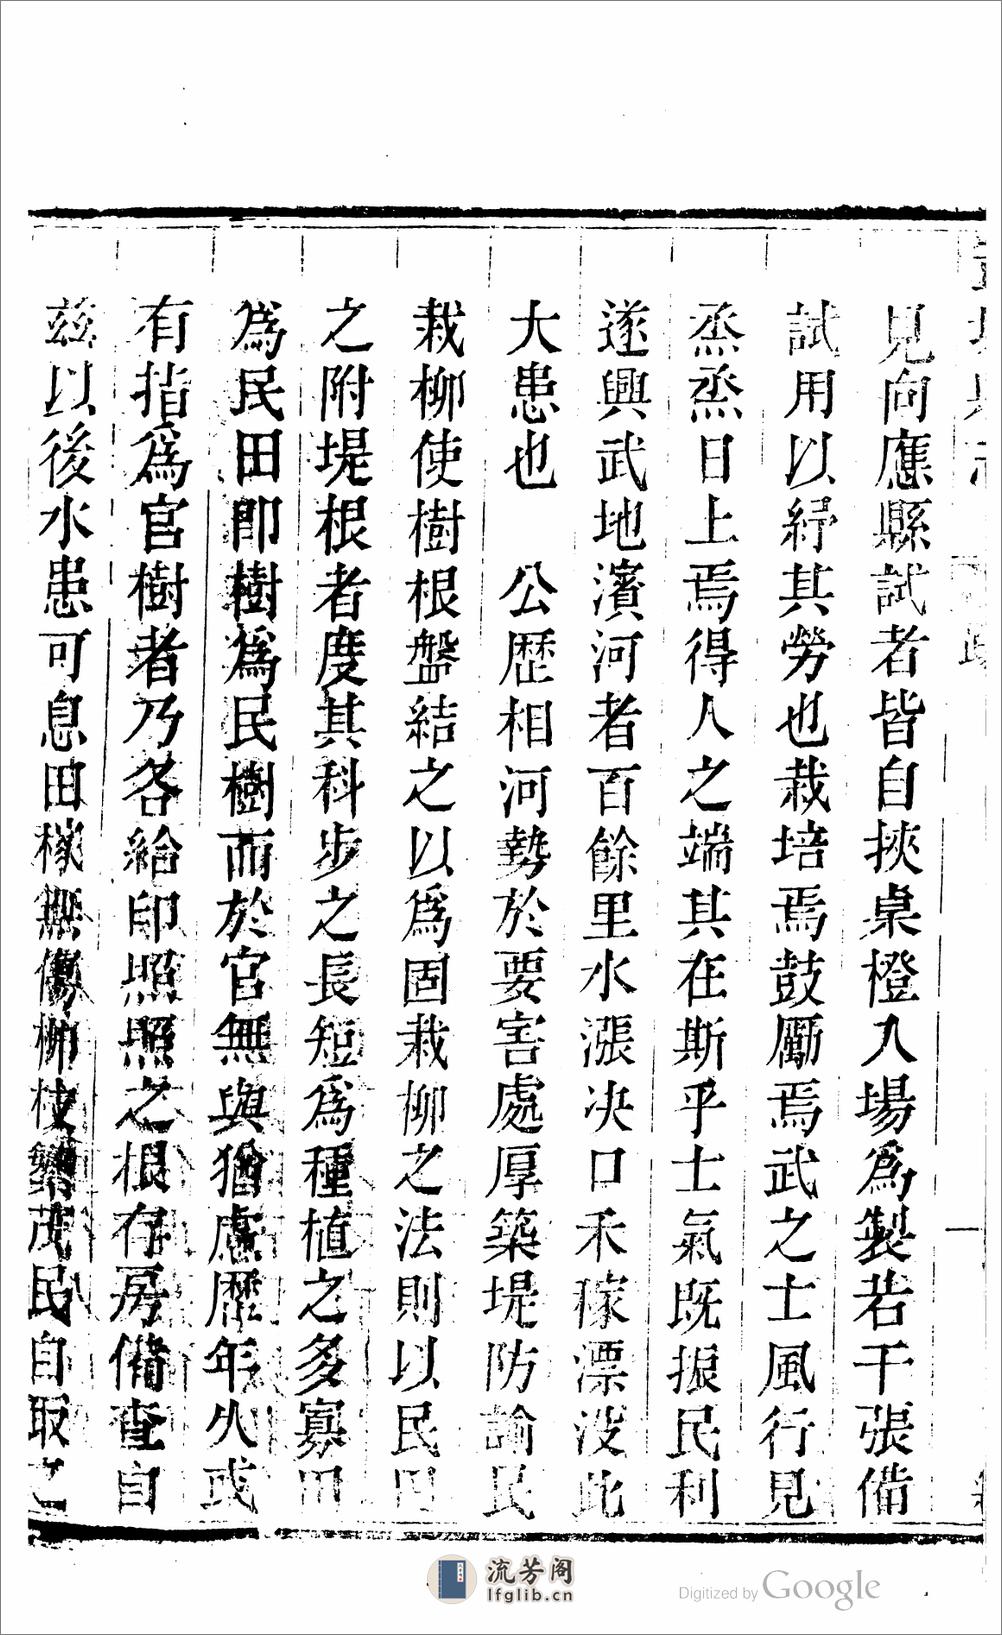 見向應縣試者皆自挾桌橙入場爲製若干張備
試用以紓其勞也栽培焉鼓厲焉武之士風行見
烝烝日上焉得人之端其在斯乎士氣既振民利
遂興武地濱河者百餘里水漲决口禾稼漂没此
大患也　公歷相河勢於要害處厚築堤防諭民
栽柳使樹根盤結之以爲固栽柳之法則以民田
之附堤根者度其科步之長短爲種植之多寡田
爲民田即樹爲民樹而於官無與猶慮歷年久或
有指爲官樹者乃各給印照照之根存房備查自
茲以後水患可息田稼無傷柳枝繁茂民自取之
流芳阁
lfglib.cn
Digitized by Google